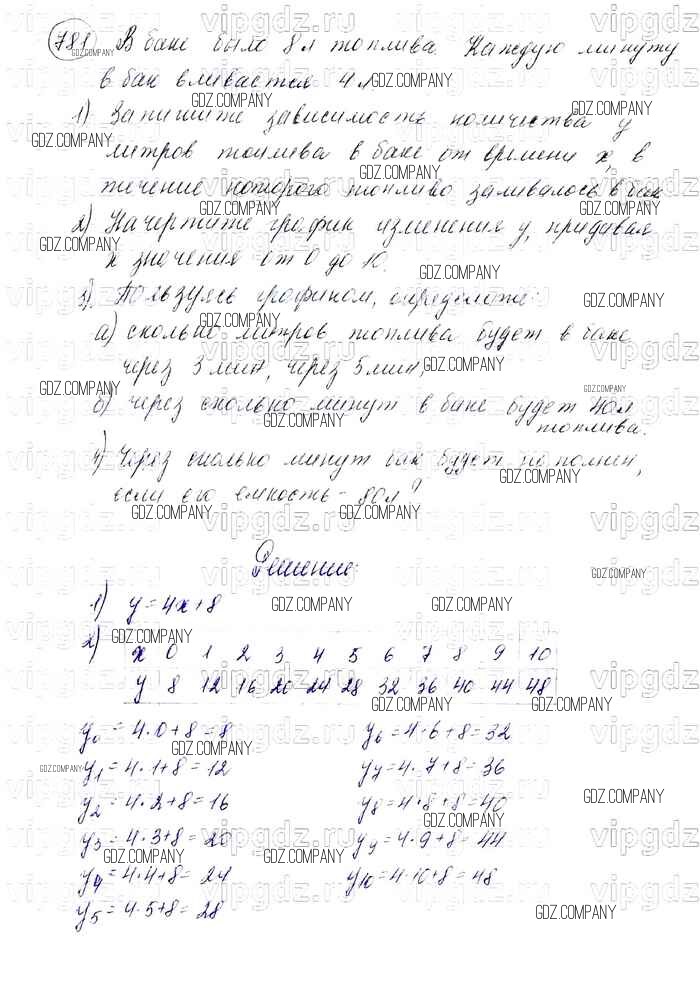 781 В баке было 8 л топлива. Каждую минуту
в бак вливается 4 л.
1) Запишите зависимость количества y
литров топлива в баке от времени x, в
течение которого топливо заливалось в бак
2) Начертите график изменения y, придавая
x значения от 0 до 10.
3) Пользуясь графиком, определите:
а) сколько литров топлива будет в баке
через 3 мин, через 5 мин,
б) через сколько минут в баке будет 40 л
топлива.
4) Через сколько минут бак будет наполнен,
если его емкость - 80 л?
Решение:
1) y = 4x+8
2) x 0 1 2 3 4 5 6 7 8 9 10
y 8 12 16 20 24 28 32 36 40 44 48
y₀ = 4·0+8 = 8 y₆ = 4·6+8 = 32
y₁ = 4·1+8 = 12 y₇ = 4·7+8 = 36
y₂ = 4·2+8 = 16 y₈ = 4·8+8 = 40
y₃ = 4·3+8 = 20 y₉ = 4·9+8 = 44
y₄ = 4·4+8 = 24 y₁₀ = 4·10+8 = 48
y₅ = 4·5+8 = 28
vipgdz.ru
GDZ.COMPANY